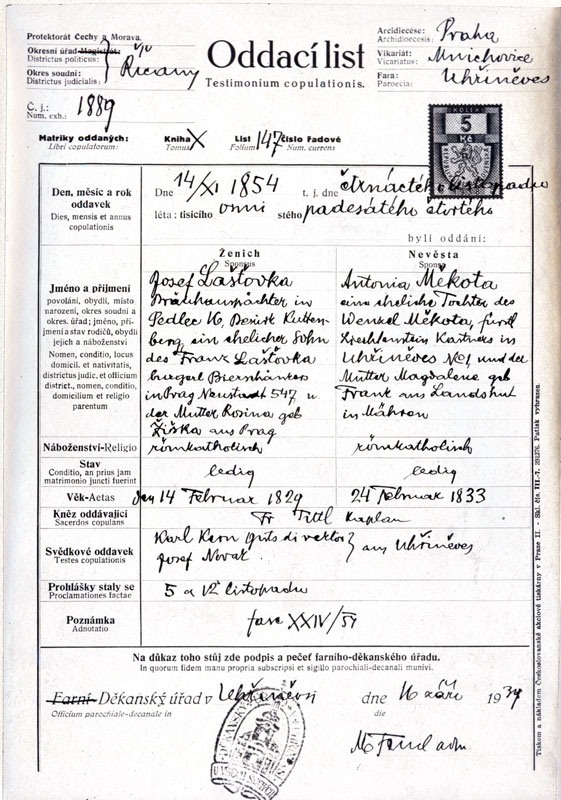 Protektorát Čechy a Morava.
Okresní úřad Magistrát:
Districtus politicus:
Okres soudní:
Districtus judicialis:
Říčany
Č. j.:
Num. exh.:
1889
Oddací list
Testimonium copulationis.
Arcidiecése: Praha
Archidioecesis:
Vikariát: Mnichovice
Vicariatus:
Fara: Uhříněves
Paroecia:
5
Matriky oddaných: Kniha X List 147 Číslo řadové
Libri copulatorum: Tomus Folium Num. currens
Den, měsíc a rok
oddavek
Dies, mensis et annus
copulationis
Dne 14/XI 1854 t. j. dne čtrnáctého listopadu
léta: tisícího osmi stého padesátého čtvrtého
byli oddáni:
Ženich
Sponsus
Nevěsta
Sponsa
Jméno a příjmení
povolání, obydlí, místo
narození, okres soudní a
okres. úřad; jméno, příj-
mení a stav rodičů, obydlí
jejich a náboženství
Nomen, conditio, locus
domicil. et nativitatis,
districtus judic. et officium
district., nomen, conditio,
domicilium et religio
parentum
Josef Lašťovka
Bräuhauspächter in
Sedlec 16, Bezirk Kutten-
berg, ein ehelicher Sohn
des Franz Lašťovka
buergel Bierschänkers
in Prag Neustadt 547, u
der Mutter Rosina geb
Žiška aus Prag
Antonia Měkota
eine eheliche Tochter des
Wenzel Měkota, fürstl
Liechtenstein Kastners in
Uhříněves No 1, und der
Mutter Magdalene geb
Frank aus Landshut
in Mähren
Náboženství-Religio römkatholisch römkatholisch
Stav
Conditio, an prius jam
matrimonio juncti fuerint
ledig ledig
Věk-Aetas den 14 Februar 1829 24 Februar 1833
Kněz oddávající
Sacerdos copulans
Fr Tittl Kaplan
Svědkové oddavek
Testes copulationis
Karl Kern Gutsdirektor
Josef Novak
aus Uhříněves
Prohlášky staly se
Proclamationes factae
5 a 12 listopadu
Poznámka
Adnotatio
fasc XXIV/54
Na důkaz toho stůj zde podpis a pečeť farního-děkanského úřadu.
In quorum fidem manu propria subscripsi et sigillo parochiali-decanali munivi.
Farní-Děkanský úřad v Uhříněvsi dne 16 září 1939
Officium parochiale-decanale in die
adm.
Tiskem a nákladem Českoslovanské akciové tiskárny v Praze II. - Skl. čís. III.-7. 39276. Patisk vyhrazen.